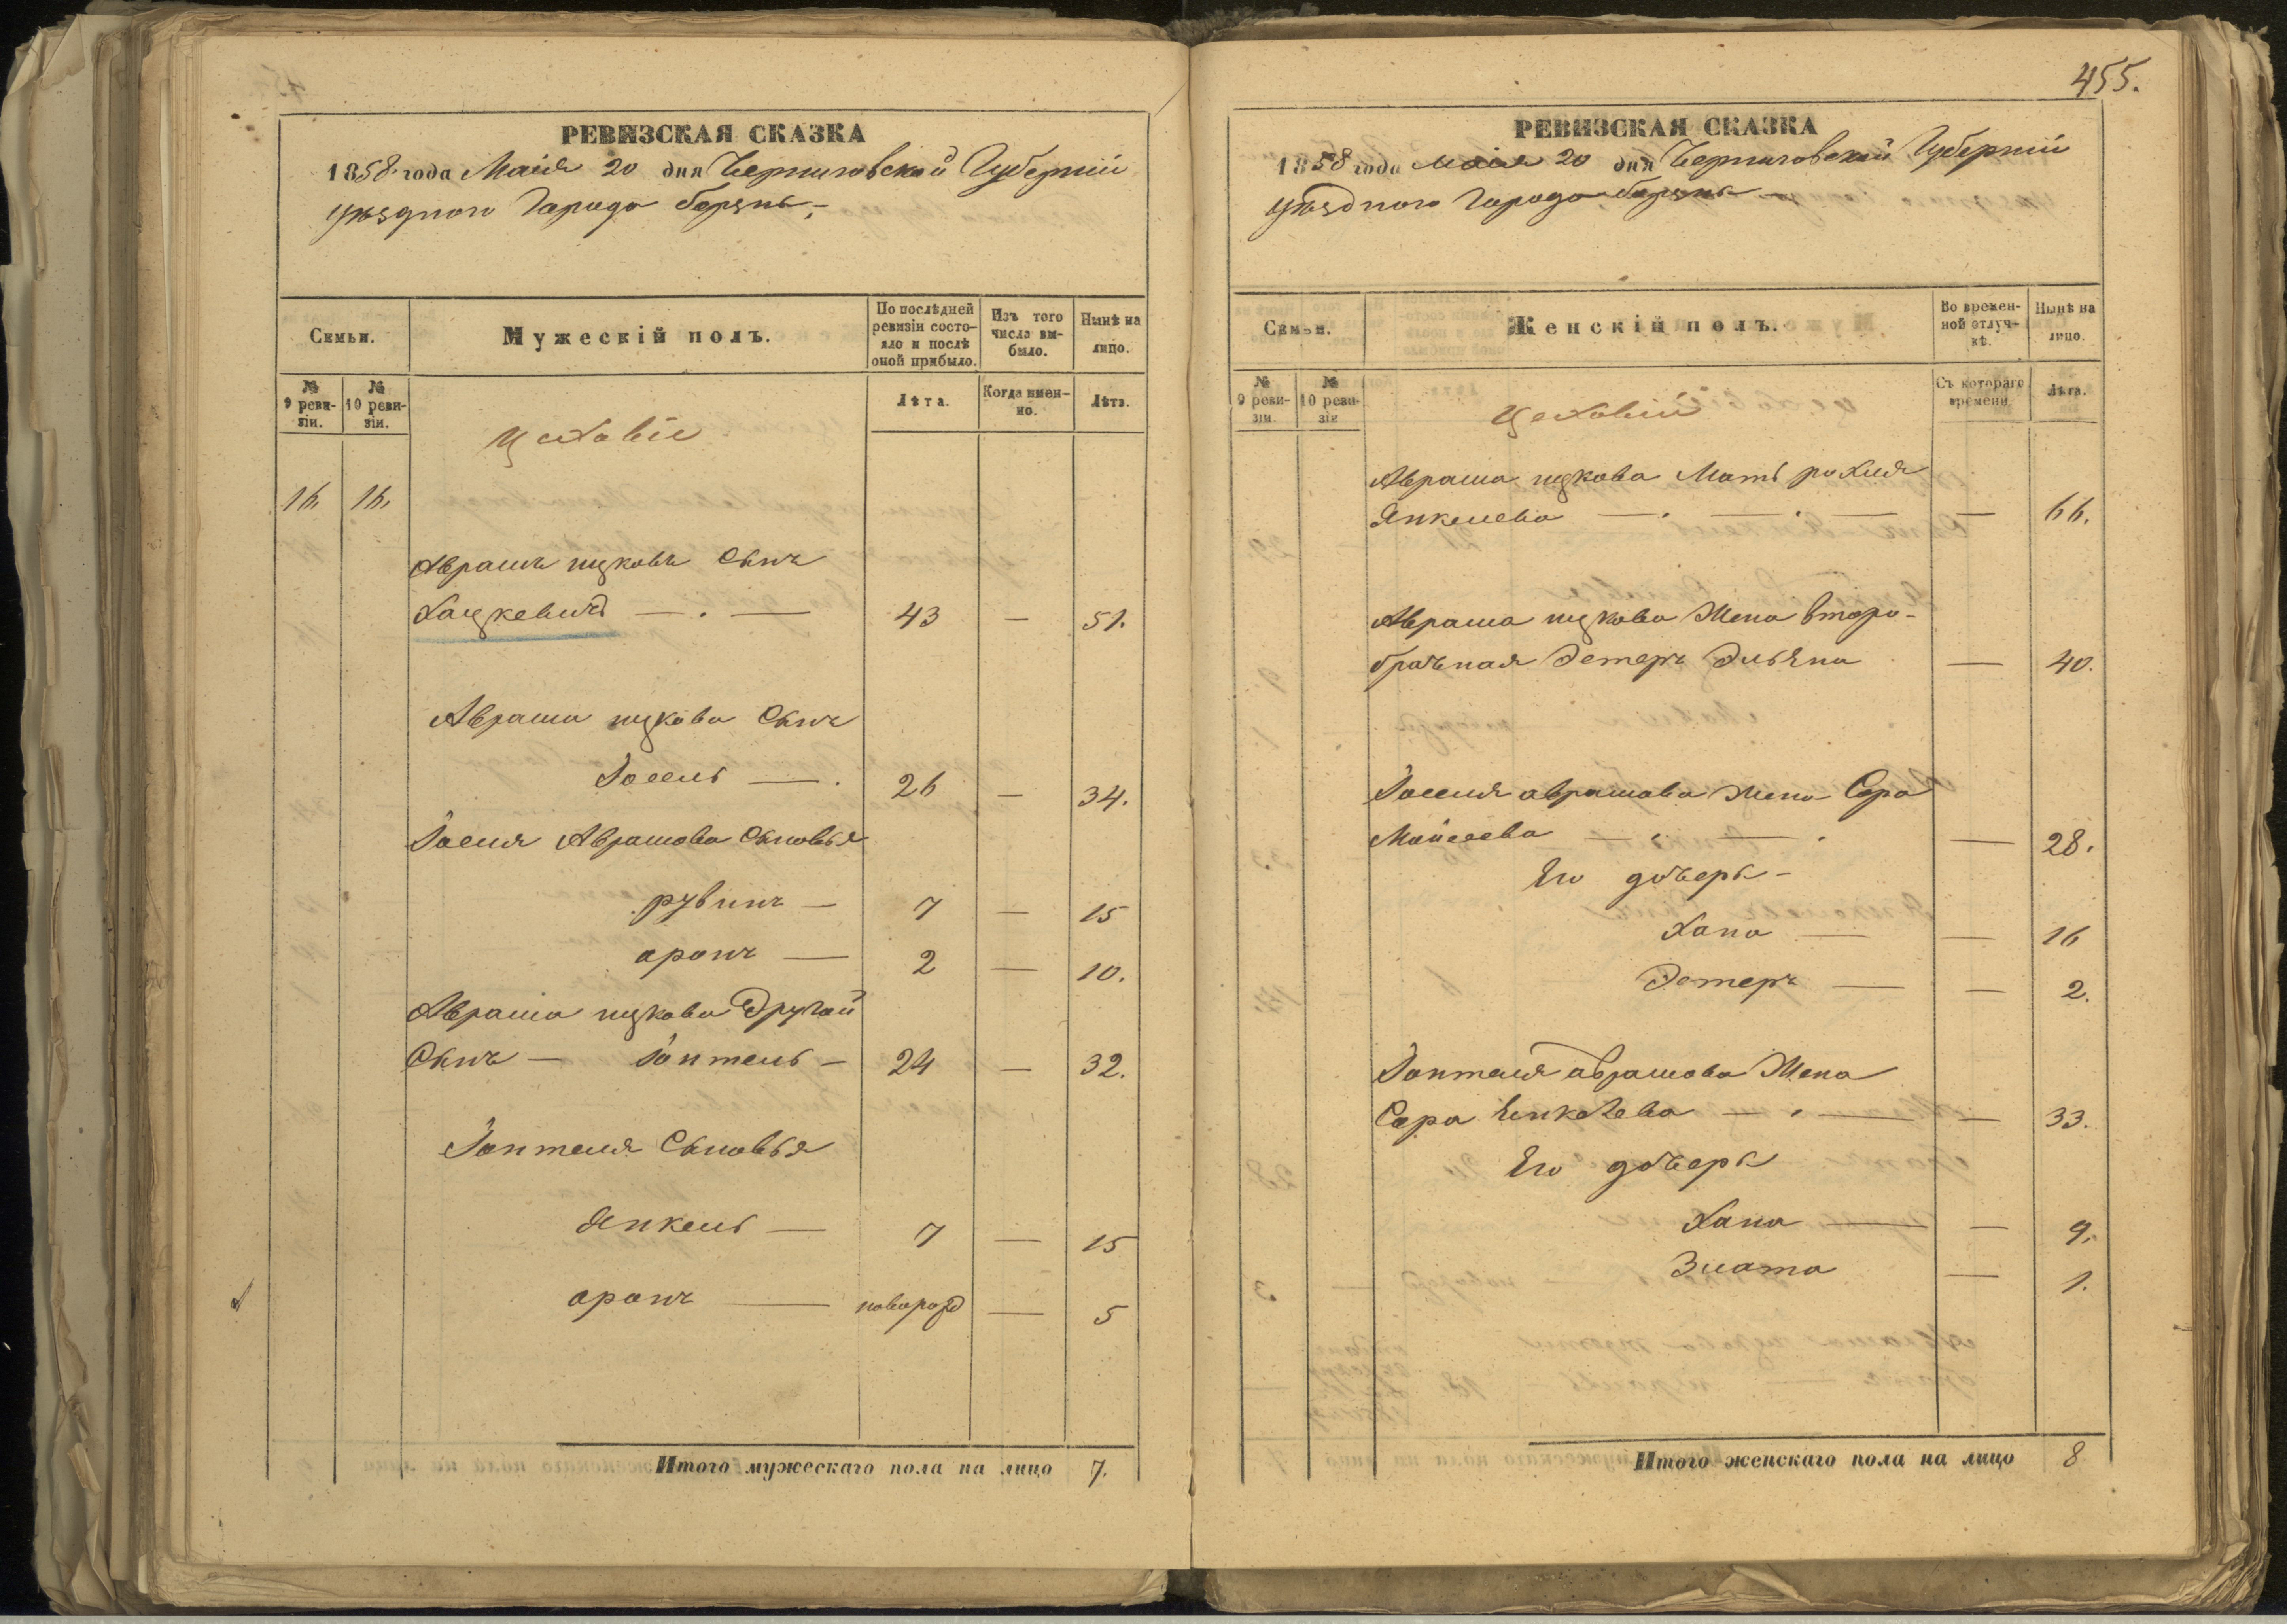 РЕВИЗСКАЯ СКАЗКА
1858 года Маія 20 дня Черниговской Губерніи
уѣзднаго Города борзны
Семьи.
Мужескій полъ.
По послѣдней ревизіи состояло и послѣ оной прибыло.
Изъ того числа выбыло.
Нынѣ на лицо.
№ 9 ревизіи.
№ 10 ревизіи.
Лѣта.
Когда именно.
Лѣта.
Цеховіе
16 16.
Аврамъ ицковъ Сынъ
Хацкевичъ — . — 43 — 51.
Аврама ицкова Сынъ
Іосель — . 26 — 34.
Іоселя Аврамова Сыновья
рувинъ — 7 — 15
аронъ — 2 — 10.
Аврама ицкова Другой
Сынъ — — 24 — 32.
Сыновья
Янкель — 7 — 15
аронъ — оворозд — 5
Итого мужескаго пола на лицо 7.
455.
РЕВИЗСКАЯ СКАЗКА
1858 года маія 20 дня Черниговской Губерніи
уѣзднаго Города борзны —
Семьи.
Женскій полъ.
Во временной отлучкѣ.
Нынѣ на лицо.
№ 9 ревизіи.
№ 10 ревизіи
Съ котораго времени.
Лѣта.
Цеховій
Аврама ицкова Мать рохля
Янкелева — . — . — — 66.
Аврама ицкова Жена второ-
брачная Эстеръ — 40.
Іоселя аврамова Жена Сора
Моисеева — . — . — 28.
Его дочери —
Хана — — 16
Эстеръ — — 2.
аврамова Жена
Сора — . — — 33.
Его дочери
Хана — — 9.
Злата — 1.
Итого женскаго пола на лицо 8